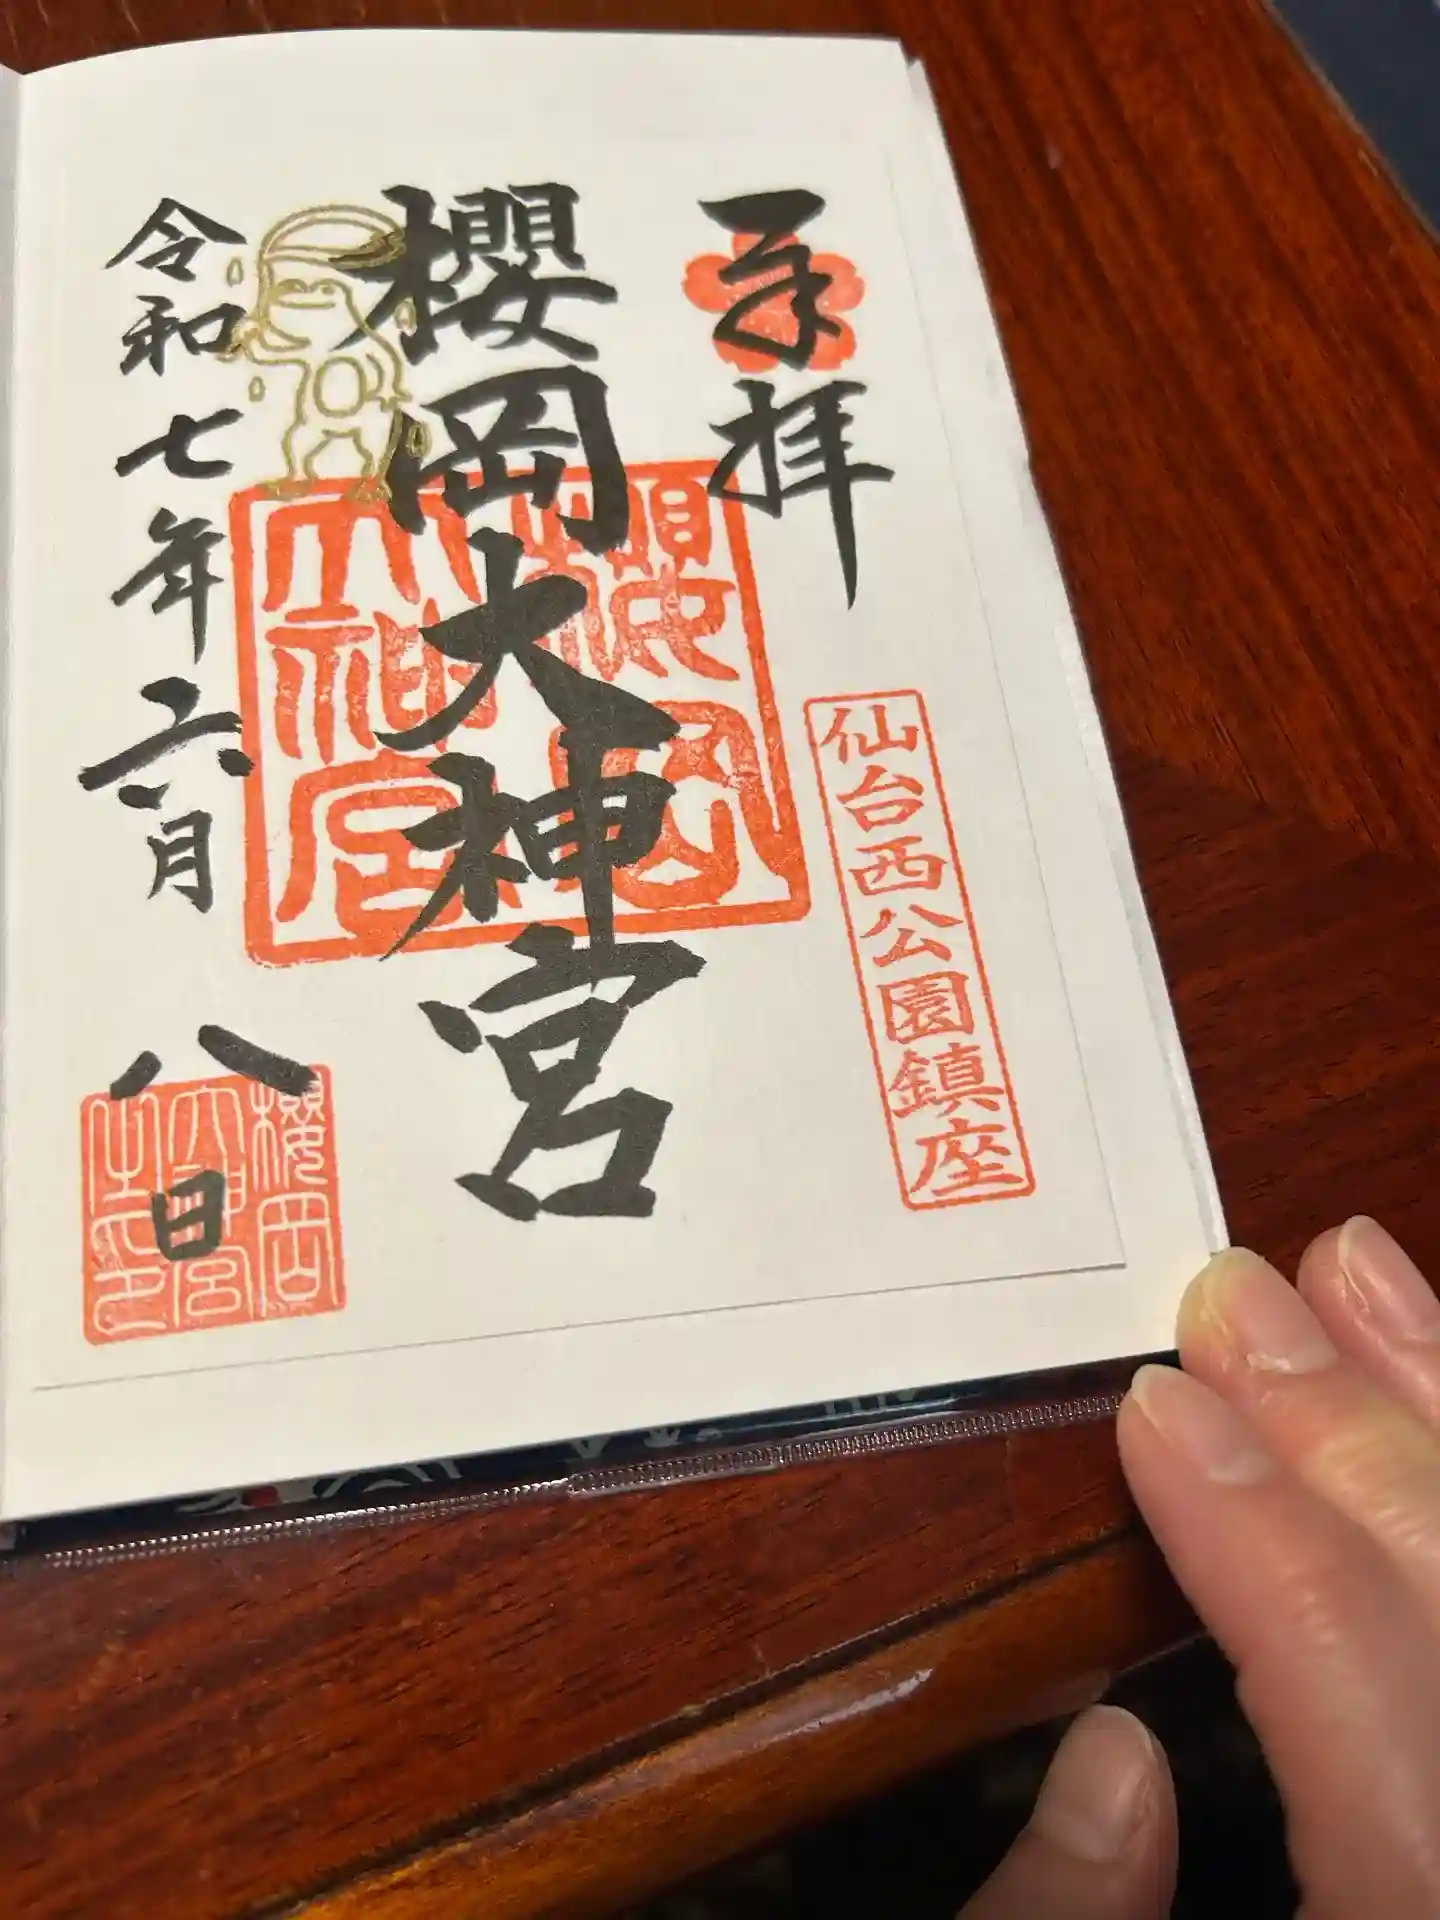 奉拝
仙台西公園鎮座
櫻岡大神宮
櫻岡
大神宮
令和七年六月八日
櫻岡
大神宮
之印